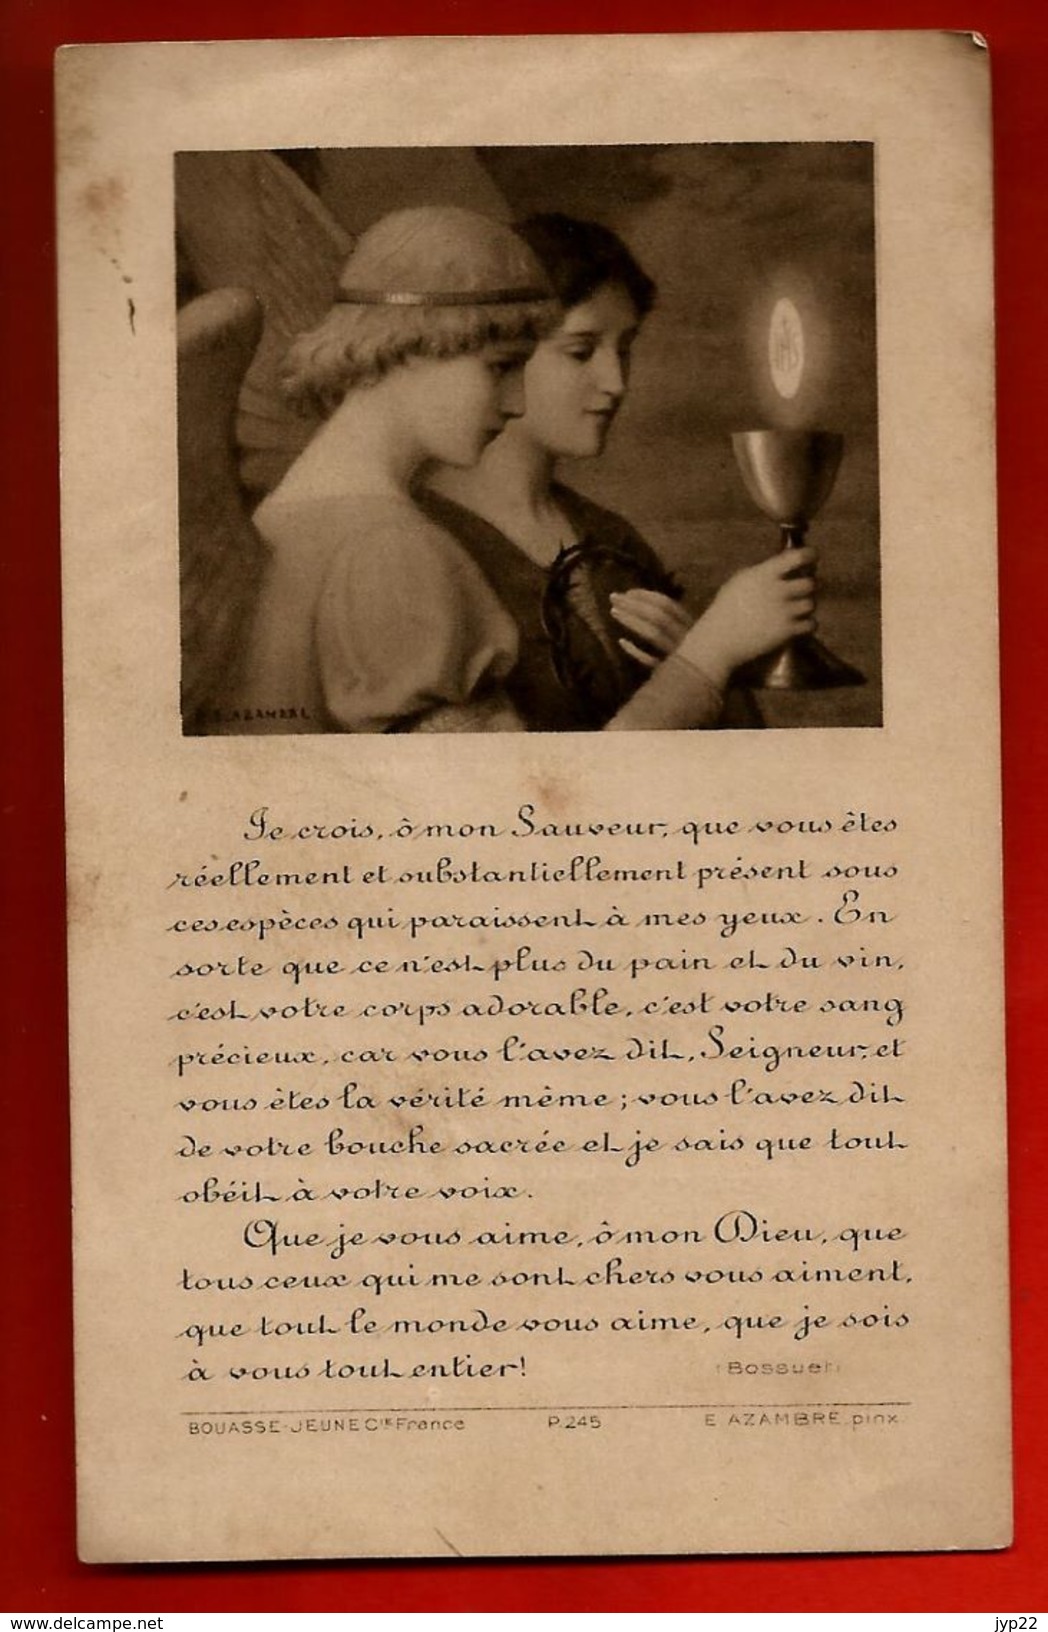 IHS
E. AZAMBRE
Je crois, ô mon Sauveur, que vous êtes
réellement et substantiellement présent sous
ces espèces qui paraissent à mes yeux. En
sorte que ce n'est plus du pain et du vin,
c'est votre corps adorable, c'est votre sang
précieux, car vous l'avez dit, Seigneur, et
vous êtes la vérité même ; vous l'avez dit
de votre bouche sacrée et je sais que tout
obéit à votre voix.
Que je vous aime, ô mon Dieu, que
tous ceux qui me sont chers vous aiment,
que tout le monde vous aime, que je sois
à vous tout entier!
(Bossuet)
BOUASSE-JEUNE Cie France P.245 E. AZAMBRE pinx.
www.delcampe.net jyp22